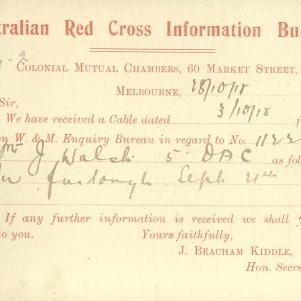 ralian Red Cross Information Bu
Colonial Mutual Chambers, 60 Market Street,
Melbourne, 28/10/18
Sir,
We have received a Cable dated 3/10/18
n W. & M. Enquiry Bureau in regard to No. 1122
J Walsh 5 DAC as fol
furlough Sept 21st
If any further information is received we shall
to you. Yours faithfully,
J. Beacham Kiddle,
Hon. Secre